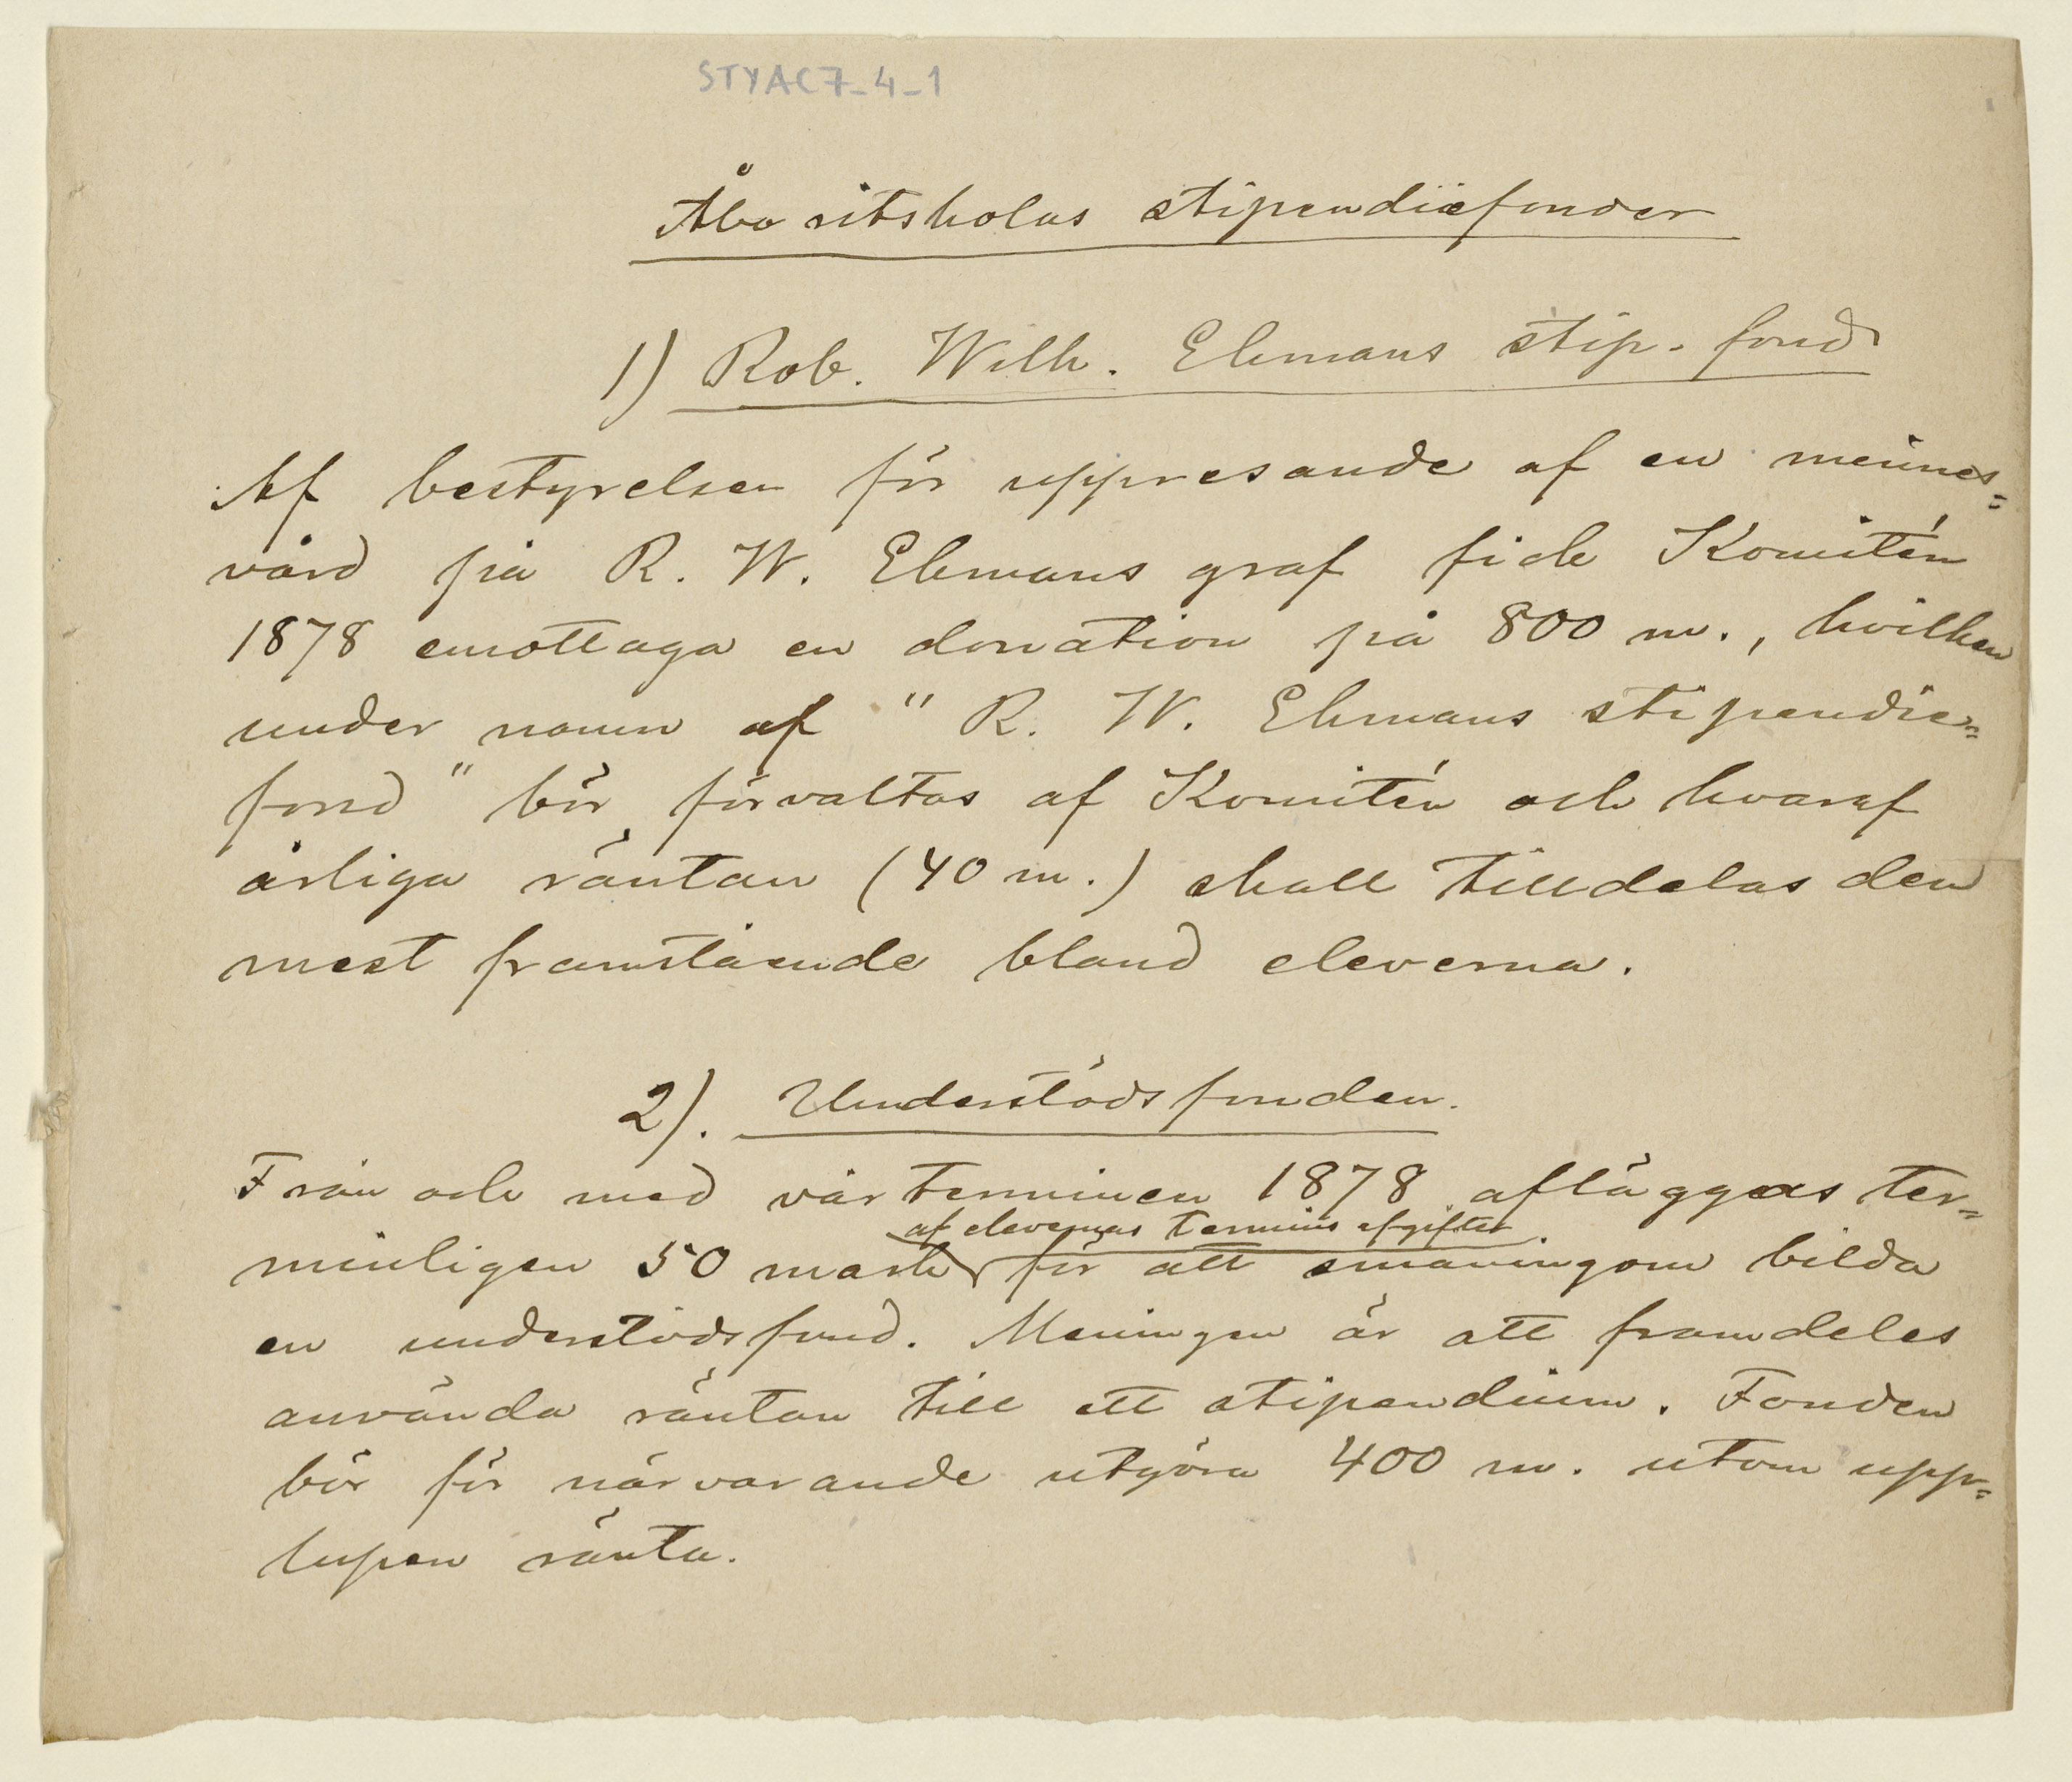 STYAC7-4-1
Åbo ritskolas stipendiefonder
1) Rob. Wilh. Ekmans stip. fond
Af bestyrelsen för uppresande af en minnes=
vård på R. W. Ekmans graf fick Komitén
1878 emottaga en donation på 800 m., hvilken
under namn af "R. W. Ekmans stipendie=
fond" bör förvaltas af Komitén och hvaraf
årliga räntan (40 m.) skall tilldelas den
mest framstående bland eleverna.
2). Understödsfonden.
Från och med vårterminen 1878 afläggas ter=
minligen 50 mark för att småningom bilda
af elevernas termins afgifter
en understödsfond. Meningen är att framdeles
använda räntan till ett stipendium. Fonden
bör för närvarande utgöra 400 m. utom upp=
lupen ränta.